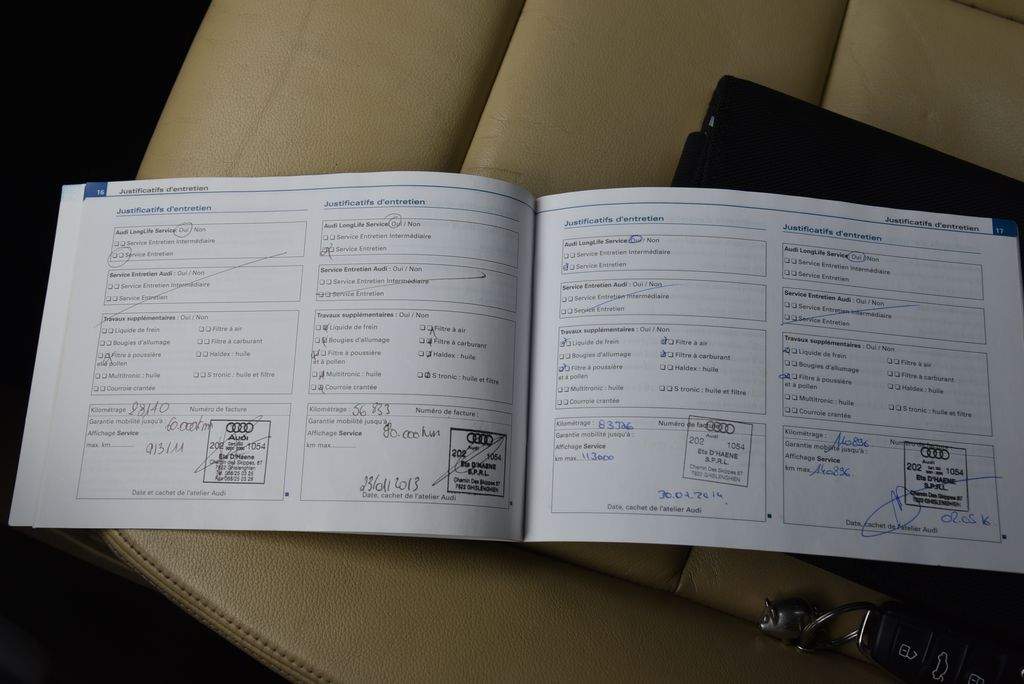 16 Justificatifs d'entretien
Justificatifs d'entretien
Audi LongLife Service Oui / Non
Service Entretien Intermédiaire
Service Entretien
Service Entretien Audi : Oui / Non
Service Entretien Intermédiaire
Service Entretien
Travaux supplémentaires : Oui / Non
Liquide de frein Filtre à air
Bougies d'allumage Filtre à carburant
Filtre à poussière Haldex : huile
et à pollen
Multitronic : huile S tronic : huile et filtre
Courroie crantée
Kilométrage Numéro de facture
Garantie mobilité jusqu'à : 60.000km
Affichage Service
max. km 9/3/11
Audi
202 1054
Ets D'Haene
Chemin Des Skippes, 67
7822 Ghislenghien
Date et cachet de l'atelier Audi
Justificatifs d'entretien
Audi LongLife Service Oui / Non
Service Entretien Intermédiaire
Service Entretien
Service Entretien Audi : Oui / Non
Service Entretien Intermédiaire
Service Entretien
Travaux supplémentaires : Oui / Non
Liquide de frein Filtre à air
Bougies d'allumage Filtre à carburant
Filtre à poussière Haldex : huile
et à pollen
Multitronic : huile S tronic : huile et filtre
Courroie crantée
Kilométrage : 56 833 Numéro de facture :
Garantie mobilité jusqu'à :
Affichage Service 80.000km
km max.
202 1054
Ets D'HAENE
S.P.R.L.
Chemin Des Skippes 67
7822 GHISLENGHIEN
23/01/2013
Date, cachet de l'atelier Audi
Justificatifs d'entretien 17
Justificatifs d'entretien
Audi LongLife Service Oui / Non
Service Entretien Intermédiaire
Service Entretien
Service Entretien Audi : Oui / Non
Service Entretien Intermédiaire
Service Entretien
Travaux supplémentaires : Oui / Non
Liquide de frein Filtre à air
Bougies d'allumage Filtre à carburant
Filtre à poussière Haldex : huile
et à pollen
Multitronic : huile S tronic : huile et filtre
Courroie crantée
Kilométrage : 83726 Numéro de
Garantie mobilité jusqu'à :
Affichage Service
km max. 113000
Audi
202 1054
Ets D'HAENE
S.P.R.L.
Chemin Des Skippes 67
7822 GHISLENGHIEN
Date, cachet de l'atelier Audi
Justificatifs d'entretien
Audi LongLife Service Oui / Non
Service Entretien Intermédiaire
Service Entretien
Service Entretien Audi : Oui / Non
Service Entretien Intermédiaire
Service Entretien
Travaux supplémentaires : Oui / Non
Liquide de frein Filtre à air
Bougies d'allumage Filtre à carburant
Filtre à poussière Haldex : huile
et à pollen
Multitronic : huile S tronic : huile et filtre
Courroie crantée
Kilométrage : 110896 Numéro de facture
Garantie mobilité jusqu'à :
Affichage Service
km max. 110896
202 1054
Ets D'HAENE
S.P.R.L.
Chemin Des Skippes 67
7822 GHISLENGHIEN
Date, cachet de l'atelier Audi